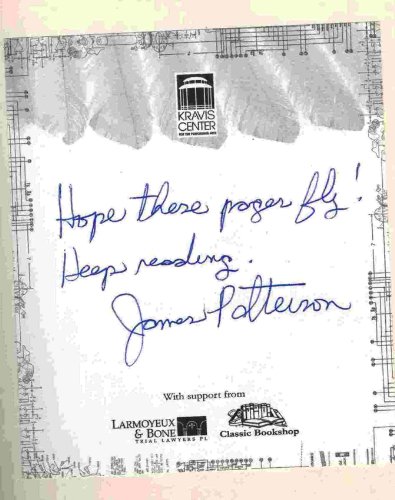 KRAVIS
CENTER
FOR THE PERFORMING ARTS
Hope these pages fly!
Keep reading.
James Patterson
With support from
LARMOYEUX
& BONE
TRIAL LAWYERS PL
Classic Bookshop